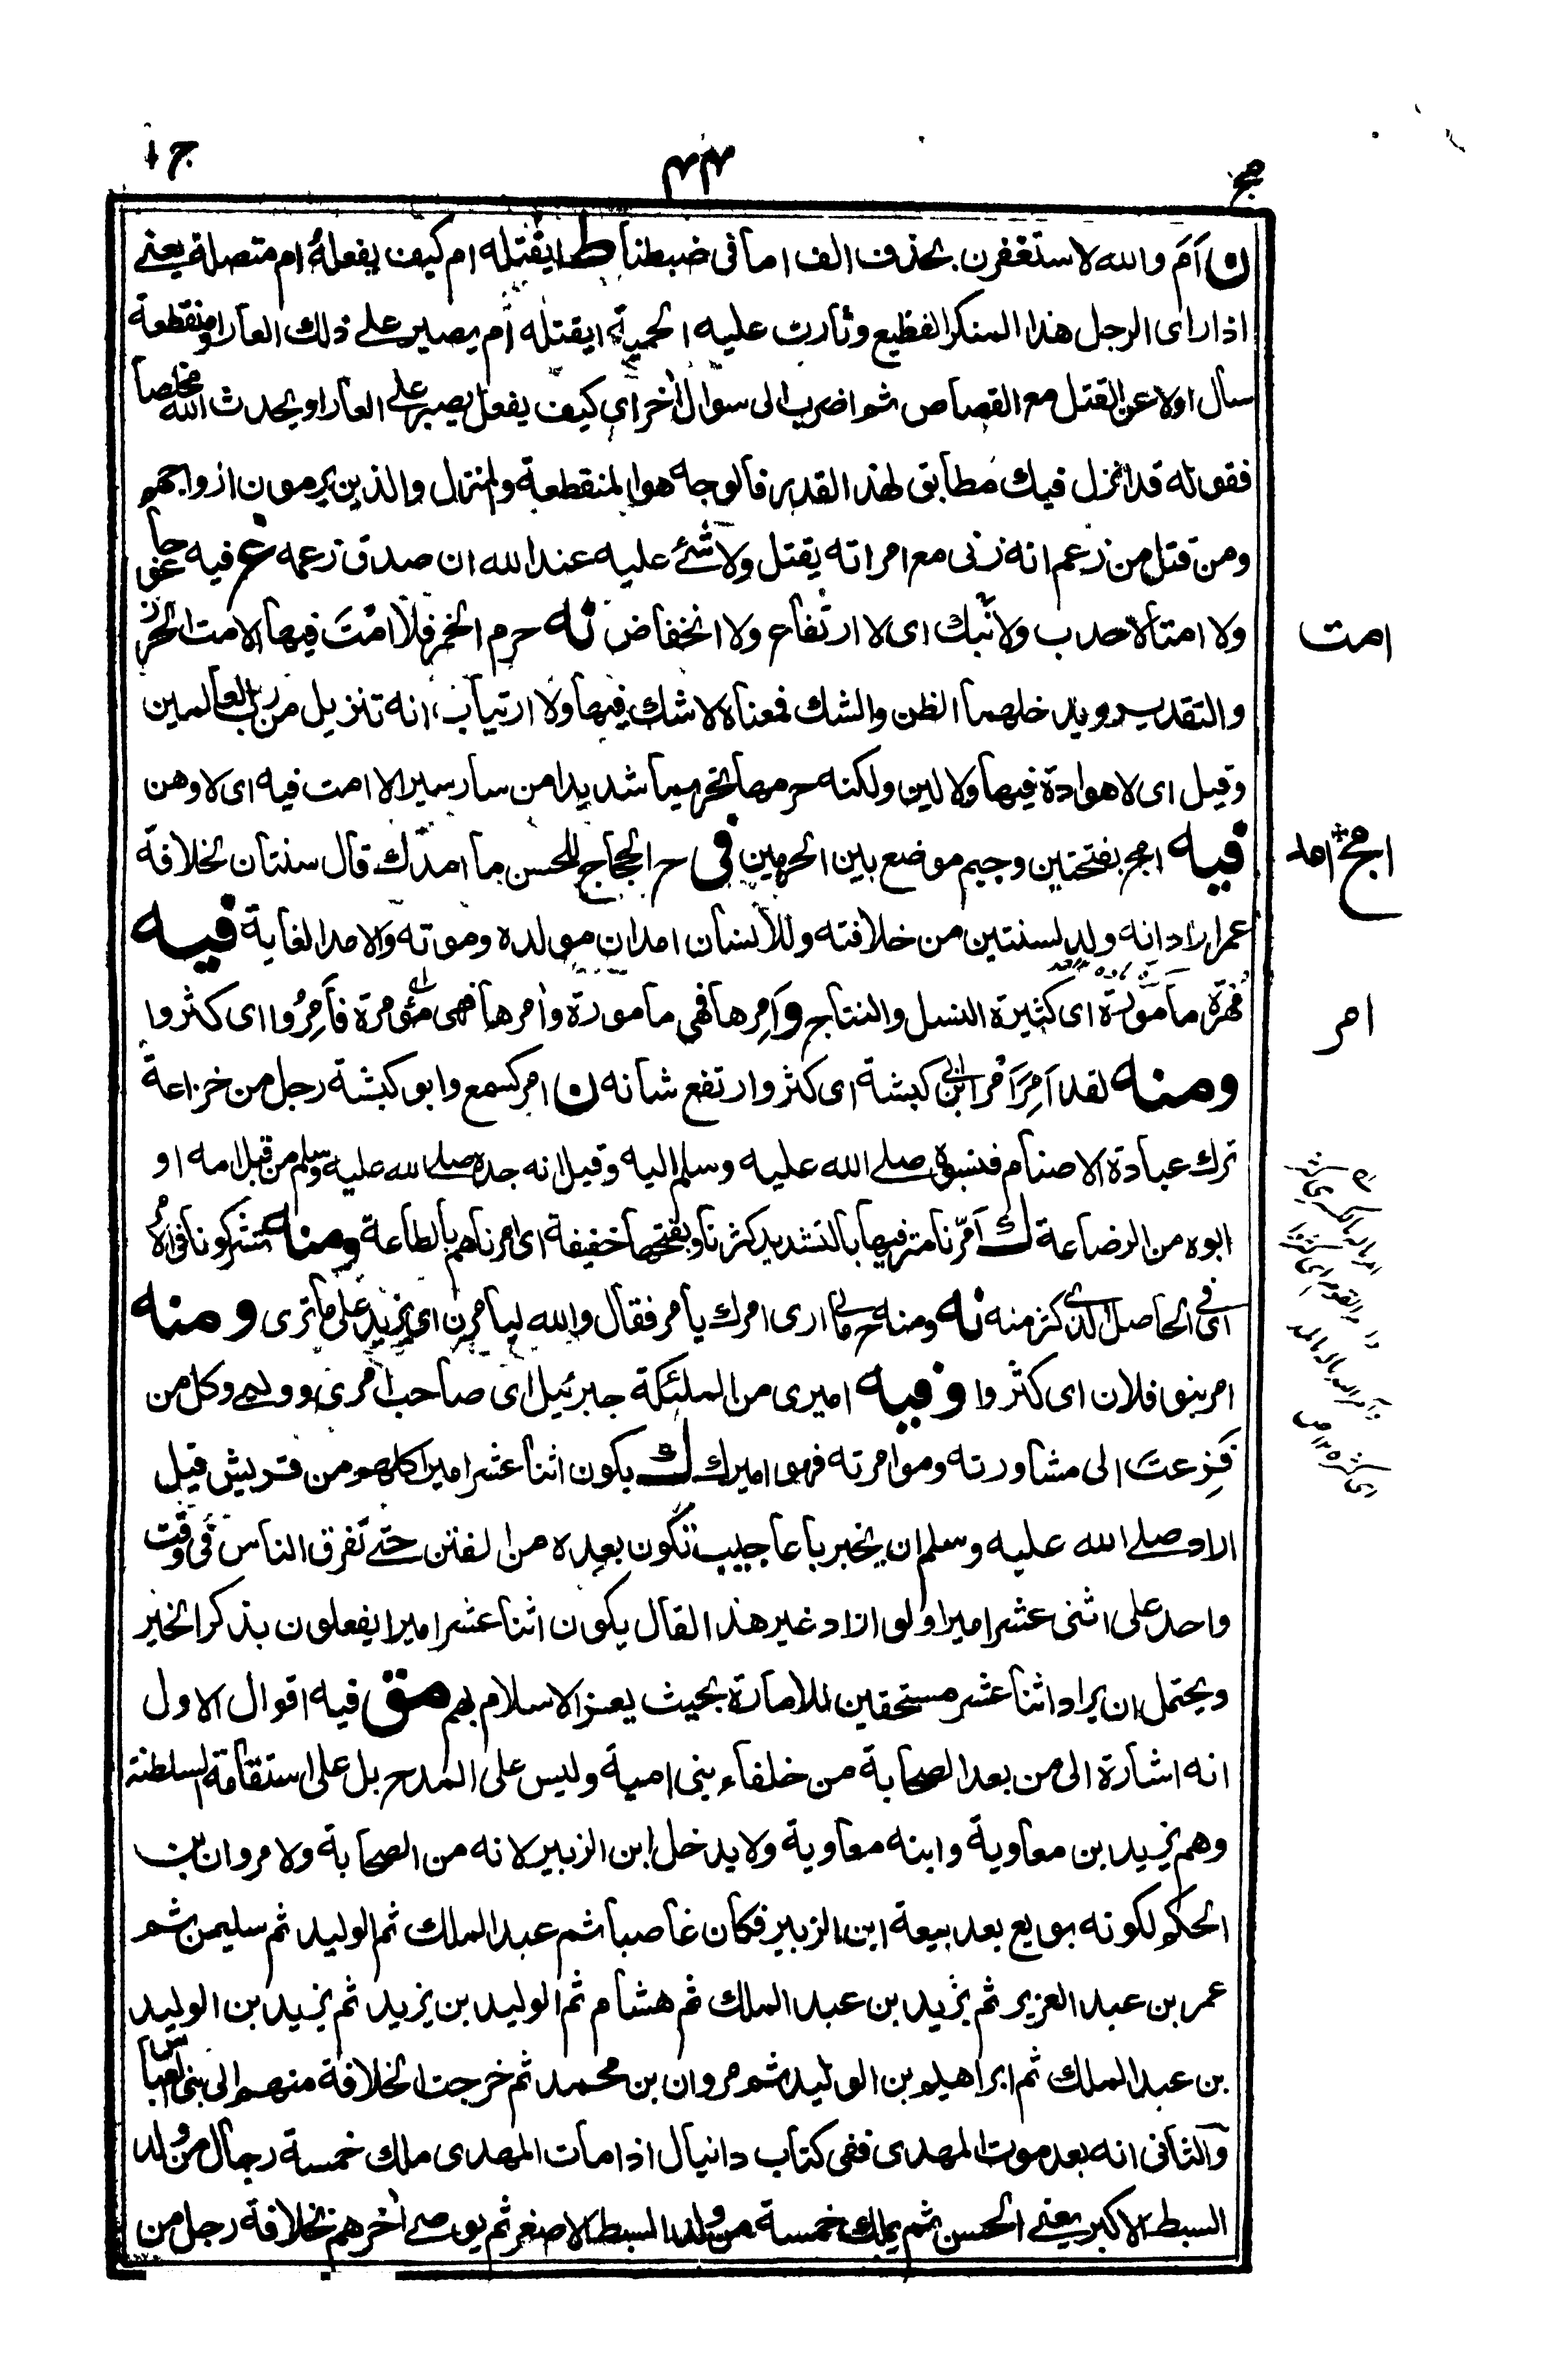 مج ٤٤ ج ١
ن اَمَ والله لاستغفرن بحذف الف اما فى ضبطنا ط ايقتله ام كيف يفعله ام متصلة يعنى
اذا راى الرجل هذا المنكر الفظيع وثارت عليه الحمية ايقتله ام يصبر على ذلك العار او منقطعة
سأل اولا عن القتل مع القصاص ثم اضرب الى سوال اخر اى كيف يفعل يصبر على العار او يحدث الله مخلصا
فقوله قد انزل فيك مطابق لهذا القدر فالوجه هو المنقطعة والمنزل والذين يرمون ازواجهم
ومن قتل من زعم انه زنى مع امراته يقتل ولا شئ عليه عند الله ان صدق زعمه غ فيه عوجا
ولا امتا لا حدب ولا نبك اى لا ارتفاع ولا انخفاض نه حرم الخمر فلا اَمْتَ فيها الامت الحزر
والتقدير ويدخلهما الظن والشك فمعناه لا شك فيها ولا ارتياب انه تنزيل من رب العالمين
وقيل اى لا هوادة فيها ولا لين ولكنه حرمها تحريما شديدا من سار سيرا لا امت فيه اى لا وهن
فيه امج بفتحتين وجيم موضع بين الحرمين فى ح الحجاج للحسن ما امدك قال سنتان لخلافة
عمر اراد انه ولد لسنتين من خلافته وللانسان امدان مولده وموته والامد الغاية فيه
مُهرة مامورة اى كثيرة النسل والنتاج وآمرها فهى مامورة وأمرها فهى مؤمرة فأَمِرُوا اى كثروا
ومنه لقد اَمِرَ اَمْر ابن ابى كبشة اى كثر وارتفع شانه ن امر كسمع وابو كبشة رجل من خزاعة
ترك عبادة الاصنام فنسبوه صلى الله عليه وسلم اليه وقيل انه جده صلى الله عليه وسلم من قبل امه او
ابوه من الرضاعة ك اَمّرنا مترفيها بالتشديد كثرنا وبفتحها خفيفة اى امرناهم بالطاعة ومنه تشركونا فى الامر
اى فى الحاصل الذى كثر منه نه ومنه ح مالى ارى امرك يامر فقال والله ليامرن اى يزيد على ما ترى ومنه
امر بنو فلان اى كثروا وفيه اميرى من الملئكة جبرئيل اى صاحب امرى ووليى وكل من
فَزِعتَ الى مشاورته وموامرته فهو اميرك ك يكون اثنا عشر اميرا كلهم من قريش قيل
اراد صلى الله عليه وسلم ان يخبر باعاجيب تكون بعده من الفتن حتى تفرق الناس فى وقت
واحد على اثنى عشر اميرا ولو اراد غير هذا لقال يكون اثنا عشر اميرا يفعلون بذكر الخير
ويحتمل ان يراد اثنا عشر مستحقين للامارة بحيث يعز الاسلام بهم مق فيه اقوال الاول
انه اشارة الى من بعد الصحابة من خلفاء بنى امية وليس على المدح بل على استقامة السلطنة
وهم يزيد ابن معاوية وابنه معاوية ولا يدخل ابن الزبير لانه من الصحابة ولا مروان بن
الحكم لكونه بويع بعد بيعة ابن الزبير فكان غاصبا ثم عبد الملك ثم الوليد ثم سليمن ثم
عمر بن عبد العزيز ثم يزيد بن عبد الملك ثم هشام ثم الوليد بن يزيد ثم يزيد بن الوليد
بن عبد الملك ثم ابراهيم بن الوليد ثم مروان بن محمد ثم خرجت الخلافة منهم الى بنى العباس
والثانى انه بعد موت المهدى ففى كتاب دانيال اذا مات المهدى ملك خمسة رجال من ولد
السبط الاكبر يعنى الحسن ثم يملك خمسة من ولد السبط الاصغر ثم يوصى اخرهم بخلافة رجل من
امت
امج امد
امر